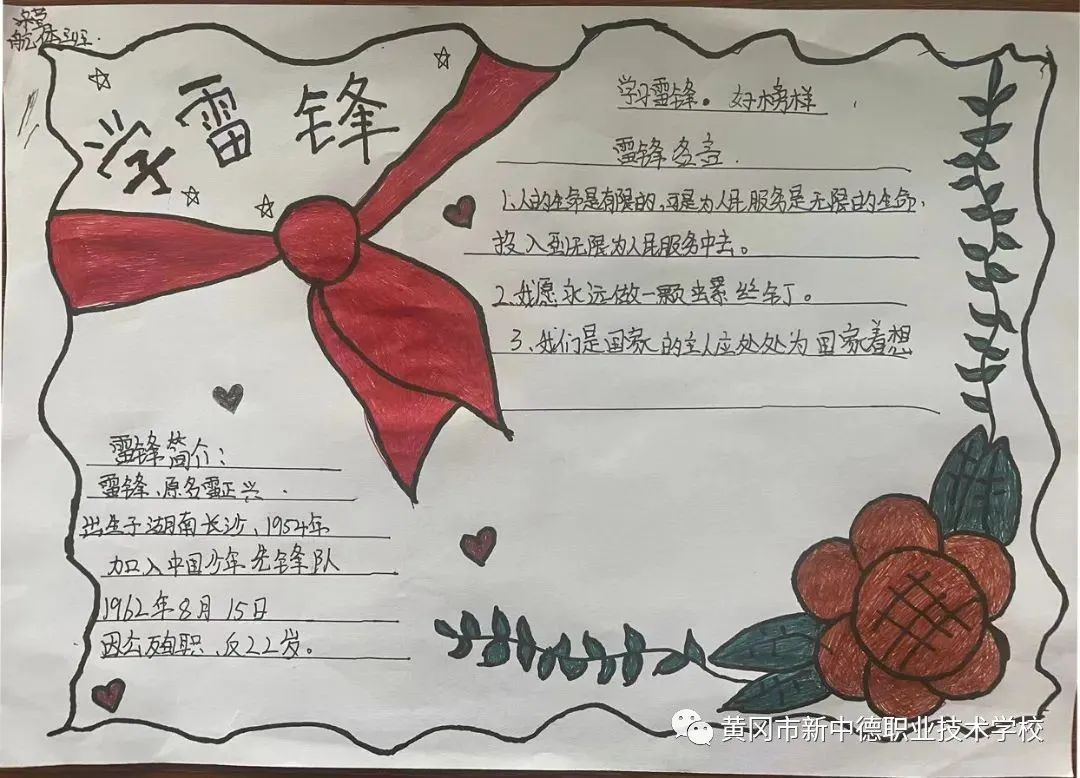 航体
学雷锋
学习雷锋。好榜样
雷锋名言.
1.人的生命是有限的,可是为人民服务是无限的生命,
投入到无限为人民服务中去。
2.我愿永远做一颗螺丝钉。
3.我们是国家的主人应处处为国家着想
雷锋简介:
雷锋、原名雷正兴.
出生于湖南长沙、1954年
加入中国少年先锋队
1962年8月15日
因公殉职、反22岁。
黄冈市新中德职业技术学校